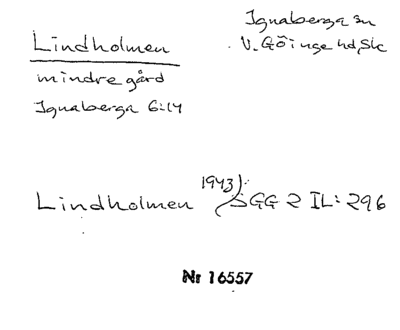 Lindholmen
mindre gård
Ignaberga 6:14
Ignaberga sn
V. Göinge hd, Sk
Lindholmen 1943) SGG 2 IL: 296
Nr 16557